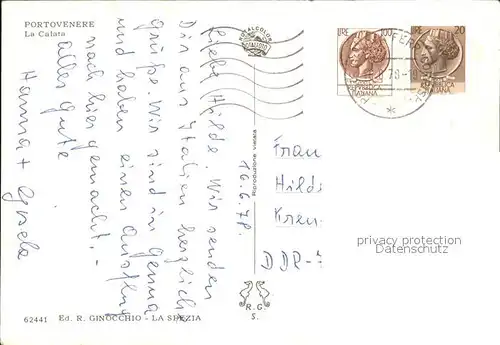 PORTOVENERE
La Calata
Liebe Hilde. Wir senden
Dir aus Italien herzliche
Grüße. Wir sind in Genua
und haben einen Ausflug
nach hier gemacht.-
Alles Gute
Hanna + Gisela
16.6.78.
REALCOLOR
Riproduzione vietata
LIRE 100
REPUBBLICA
ITALIANA
LIRE 20
REPUBBLICA
ITALIANA
Frau
Hilde
DDR-
privacy protection
Datenschutz
R. G.
S.
62441 Ed. R. GINOCCHIO - LA SPEZIA